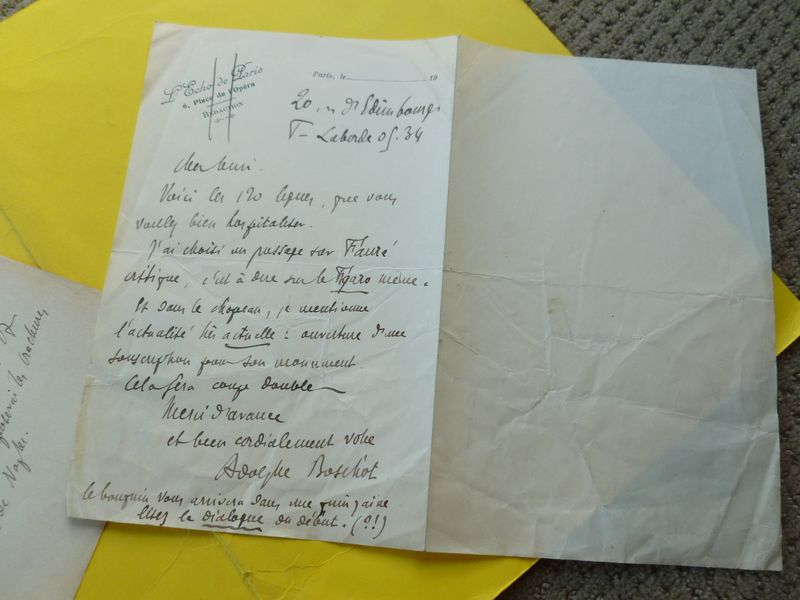 L'Echo de Paris
6, Place de l'Opéra
RÉDACTION
Paris, le 19
20, r. d'Edimbourg
T- Laborde 05.34
cher ami.
Voici les 120 lignes, que vous
voulez bien hospitaliser.
J'ai choisi un passage sur Fauré
critique, c'est à dire sur le Figaro même.
Et dans le chapeau, je mentionne
l'actualité très actuelle : ouverture d'une
souscription pour son monument.
Cela fera coup double
Merci d'avance
et bien cordialement votre
Adolphe Boschot
le bouquin vous arrivera dans une quinzaine
lisez le dialogue du début. (?!)
les brochures
de